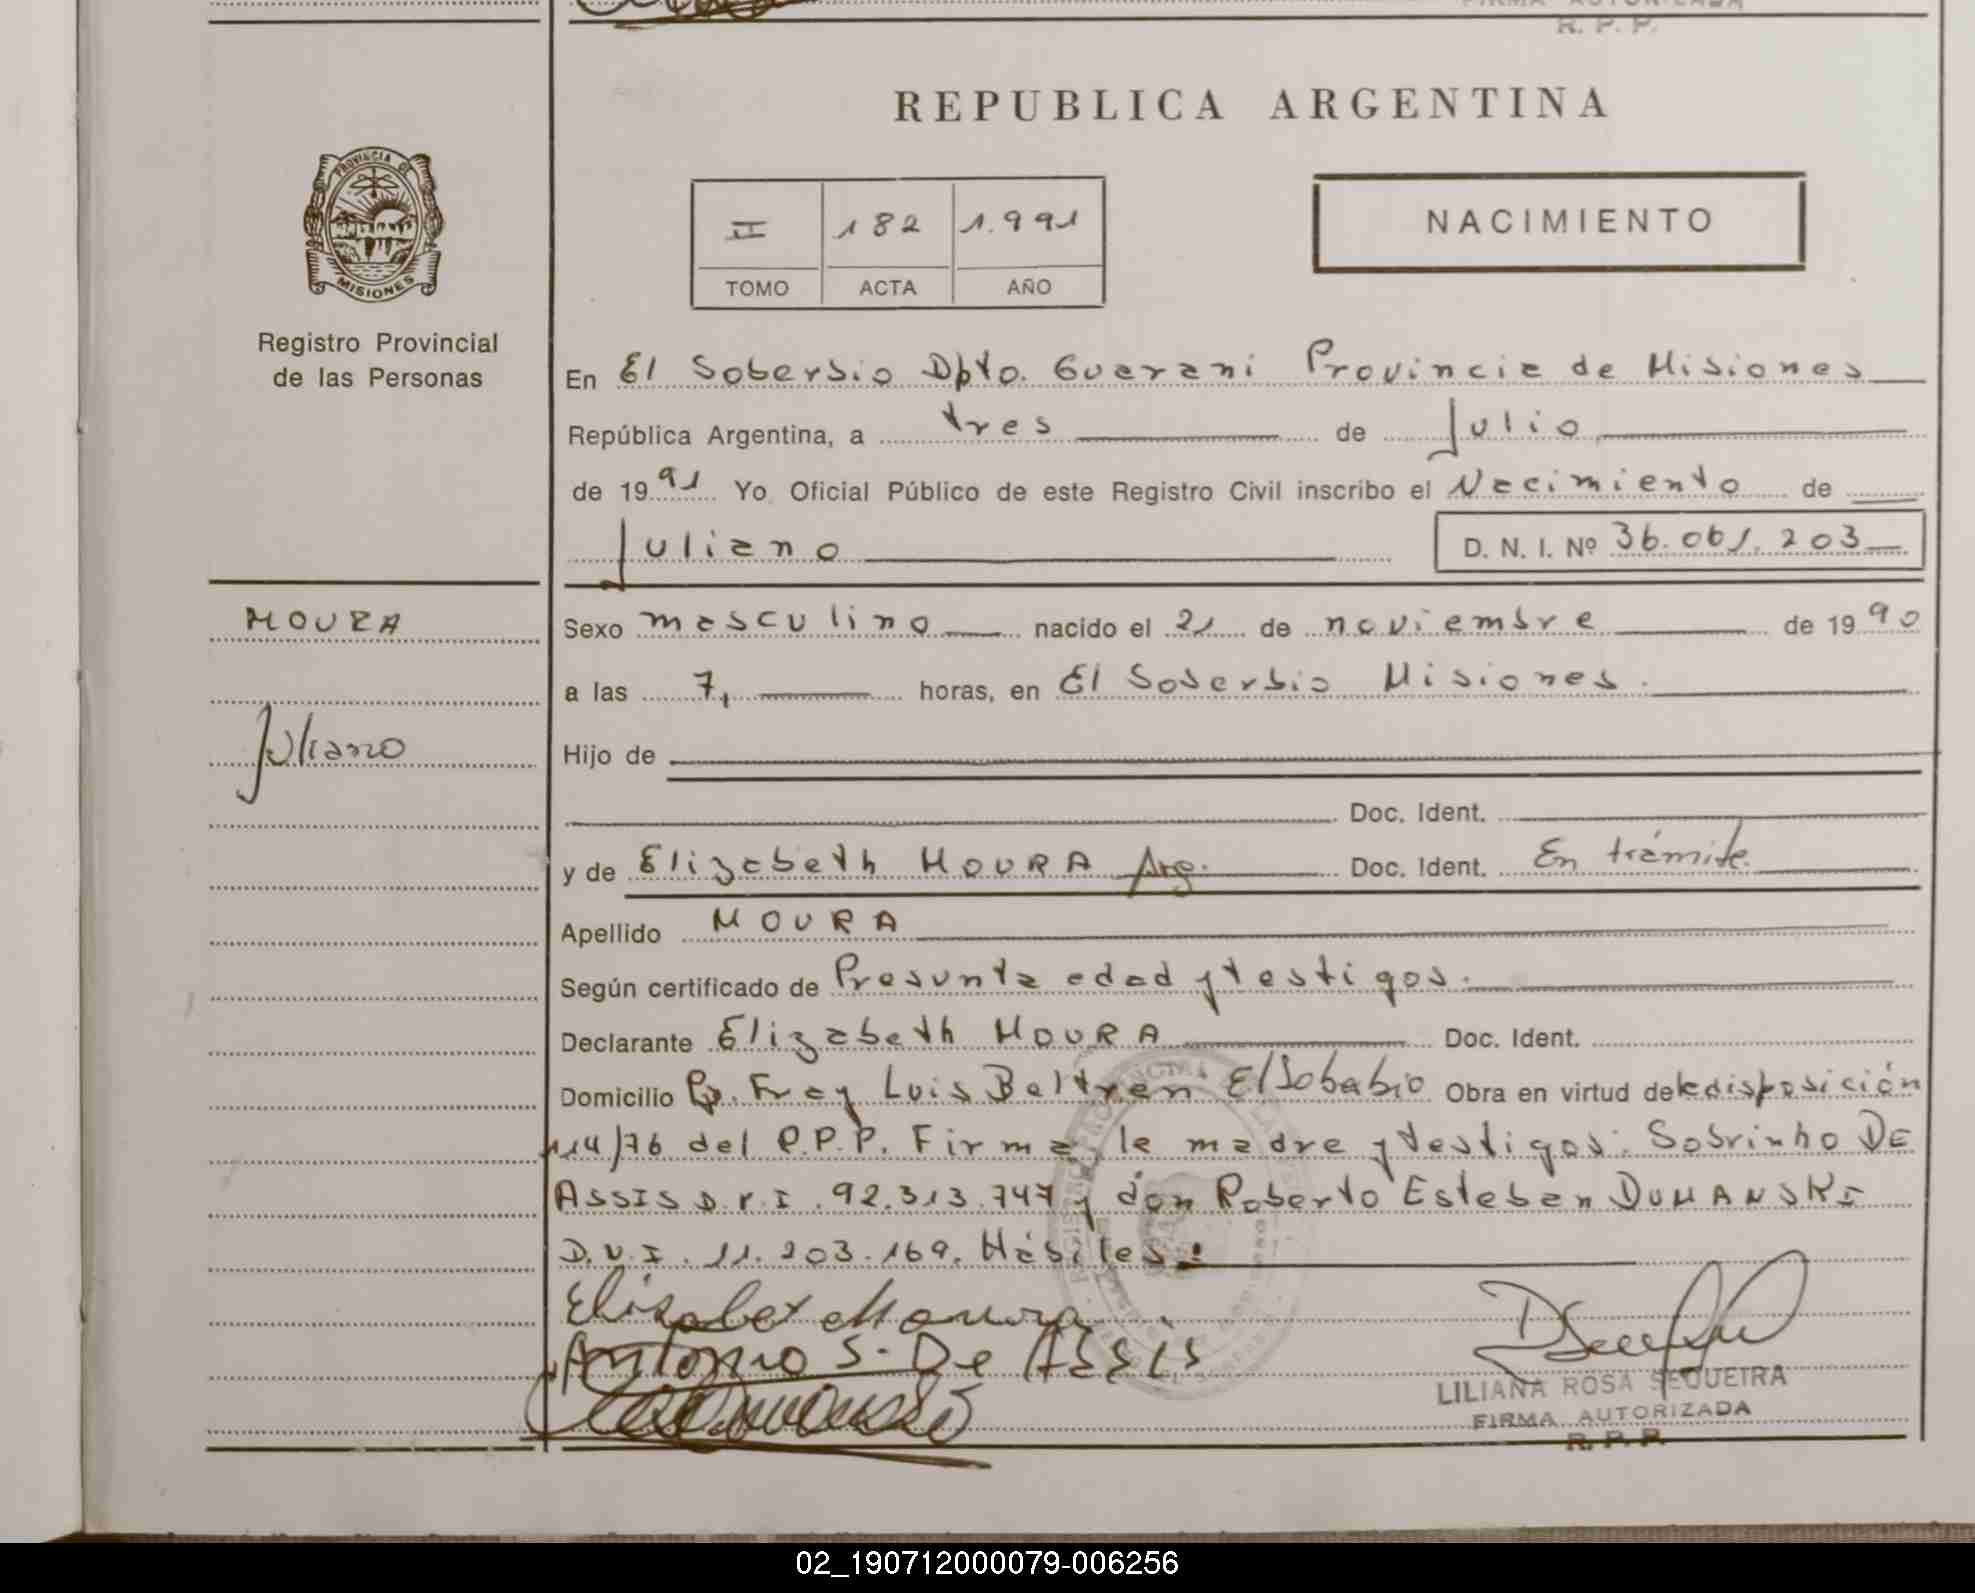 FIRMA AUTORIZADA
R. P. P.
REPUBLICA ARGENTINA
PROVINCIA DE
MISIONES
II 182 1.991
TOMO ACTA AÑO
NACIMIENTO
Registro Provincial
de las Personas
En El Soberbio Dpto. Guarani Provincia de Misiones
República Argentina, a tres de Julio
de 1991 Yo Oficial Público de este Registro Civil inscribo el Nacimiento de
Juliano
D. N. I. Nº 36.061.203
MOURA
Juliano
Sexo masculino nacido el 21 de noviembre de 1990
a las 7, horas, en El Soberbio Misiones.
Hijo de
Doc. Ident.
y de Elizabeth MOURA Arg. Doc. Ident. En trámite.
Apellido MOURA
Según certificado de Presunta edad y testigos.
Declarante Elizabeth MOURA Doc. Ident.
Domicilio Fray Luis Beltran El Sobabio Obra en virtud de la disposición
114/76 del R.P.P. Firma la madre y testigos: Sobrinho DE
ASSIS D.N.I. 92.313.747 y don Roberto Esteban DUMANSKI
D.N.I. 11.203.169. Hábiles:
Elisabet Moura
Antonio S. De Assis
LILIANA ROSA SEQUEIRA
FIRMA AUTORIZADA
R. P. P.
02_190712000079-006256